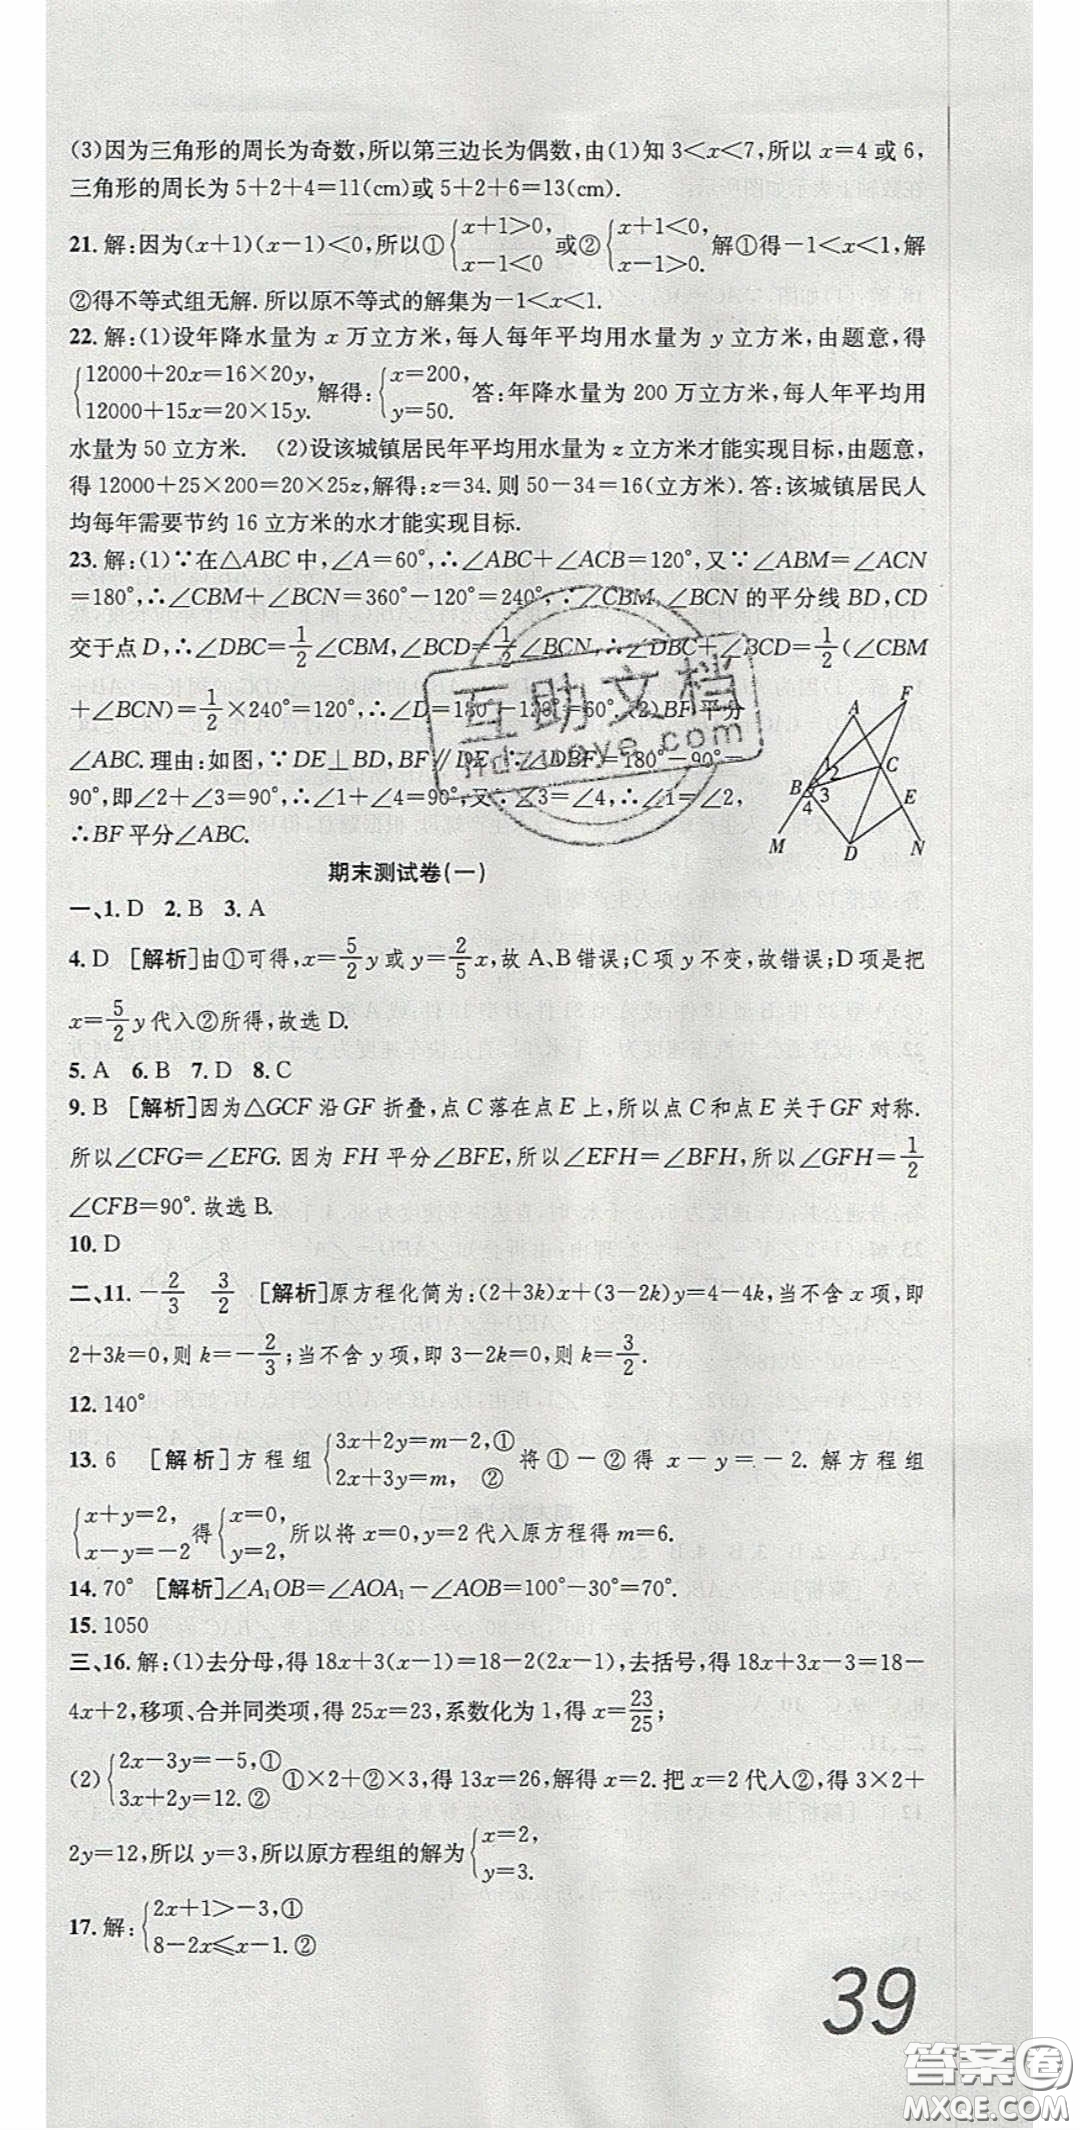 (3)因为三角形的周长为奇数,所以第三边长为偶数,由(1)知 3<x<7,所以 x=4 或 6,
三角形的周长为 5+2+4=11(cm)或 5+2+6=13(cm).
21. 解:因为(x+1)(x-1)<0,所以① {x+1>0, x-1<0 或② {x+1<0, x-1>0. 解①得-1<x<1,解
②得不等式组无解.所以原不等式的解集为-1<x<1.
22. 解:(1)设年降水量为 x 万立方米,每人每年平均用水量为 y 立方米,由题意,得
{12000+20x=16×20y, 12000+15x=20×15y. 解得: {x=200, y=50. 答:年降水量为 200 万立方米,每人年平均用
水量为 50 立方米. (2)设该城镇居民年平均用水量为 z 立方米才能实现目标,由题意,
得 12000+25×200=20×25z,解得:z=34. 则 50-34=16(立方米). 答:该城镇居民人
均每年需要节约 16 立方米的水才能实现目标.
23. 解:(1)∵在△ABC 中,∠A=60°,∴∠ABC+∠ACB=120°,又∵∠ABM=∠ACN
=180°,∴∠CBM+∠BCN=360°-120°=240°,∵∠CBM,∠BCN 的平分线 BD,CD
交于点 D,∴∠DBC=1/2∠CBM,∠BCD=1/2∠BCN,∴∠DBC+∠BCD=1/2(∠CBM
+∠BCN)=1/2×240°=120°,∴∠D=180°-120°=60°. (2)BF 平分
∠ABC.理由:如图,∵DE⊥BD,BF∥DE,∴∠DBF=180°-90°=
90°,即∠2+∠3=90°,∴∠1+∠4=90°,又∵∠3=∠4,∴∠1=∠2,
∴BF 平分∠ABC.
A F B 2 C 3 4 E M D N
期末测试卷(一)
一、1. D 2. B 3. A
4. D [解析]由①可得,x=5/2 y 或 y=2/5 x,故 A、B 错误;C 项 y 不变,故错误;D 项是把
x=5/2 y 代入②所得,故选 D.
5. A 6. B 7. D 8. C
9. B [解析]因为△GCF 沿 GF 折叠,点 C 落在点 E 上,所以点 C 和点 E 关于 GF 对称.
所以∠CFG=∠EFG. 因为 FH 平分∠BFE,所以∠EFH=∠BFH,所以∠GFH=1/2
∠CFB=90°. 故选 B.
10. D
二、11. -2/3 3/2 [解析]原方程化简为:(2+3k)x+(3-2k)y=4-4k,当不含 x 项,即
2+3k=0,则 k=-2/3;当不含 y 项,即 3-2k=0,则 k=3/2.
12. 140°
13. 6 [解析]方程组 {3x+2y=m-2,① 2x+3y=m, ② 将①-②得 x-y=-2. 解方程组
{x+y=2, x-y=-2 得 {x=0, y=2, 所以将 x=0,y=2 代入原方程得 m=6.
14. 70° [解析]∠A₁OB=∠AOA₁-∠AOB=100°-30°=70°.
15. 1050
三、16. 解:(1)去分母,得 18x+3(x-1)=18-2(2x-1),去括号,得 18x+3x-3=18-
4x+2,移项、合并同类项,得 25x=23,系数化为 1,得 x=23/25;
(2) {2x-3y=-5,① 3x+2y=12. ② ①×2+②×3,得 13x=26,解得 x=2. 把 x=2 代入②,得 3×2+
2y=12,所以 y=3,所以原方程组的解为 {x=2, y=3.
17. 解: {2x+1>-3,① 8-2x≤x-1. ②
39
互助文档
hdzuoye.com
答案圈
MXQE.COM